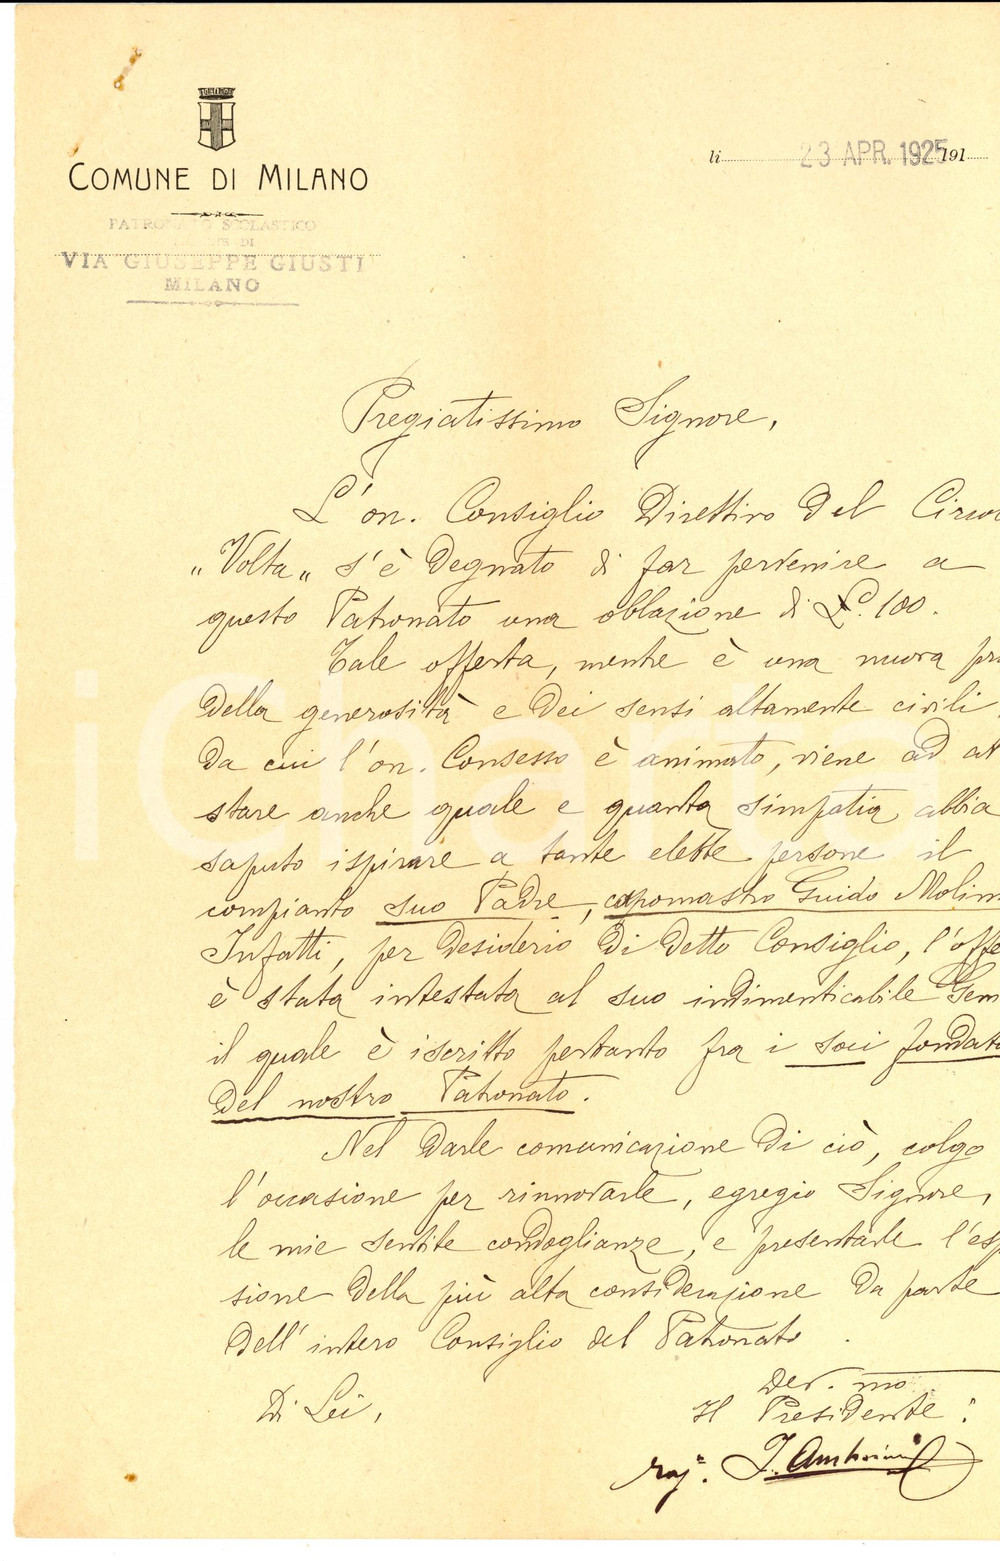 COMUNE DI MILANO
li 23 APR. 1925 191
PATRONATO SCOLASTICO
DI
VIA GIUSEPPE GIUSTI
MILANO
Pregiatissimo Signore,
L'on. Consiglio Direttivo del Circo
„Volta„ s'è degnato di far pervenire a
questo Patronato una oblazione di L. 100.
Tale offerta, mentre è una nuova pr
della generosità e dei sensi altamente civili
da cui l'on. Consesso è animato, viene ad at
stare anche quale e quanta simpatia abbia
saputo ispirare a tante elette persone il
compianto suo Padre, capomastro Guido Molin
Infatti, per desiderio di detto Consiglio, l'offe
è stata intestata al suo indimenticabile Gen
il quale è iscritto pertanto fra i soci fondato
del nostro Patronato.
Nel darle comunicazione di ciò, colgo
l'occasione per rinnovarle, egregio Signore,
le mie sentite condoglianze, e presentarle l'esp
sione della più alta considerazione da parte
dell'intero Consiglio del Patronato.
Di Lei,
Dev.mo
Il Presidente:
rag. J. Ambrosini